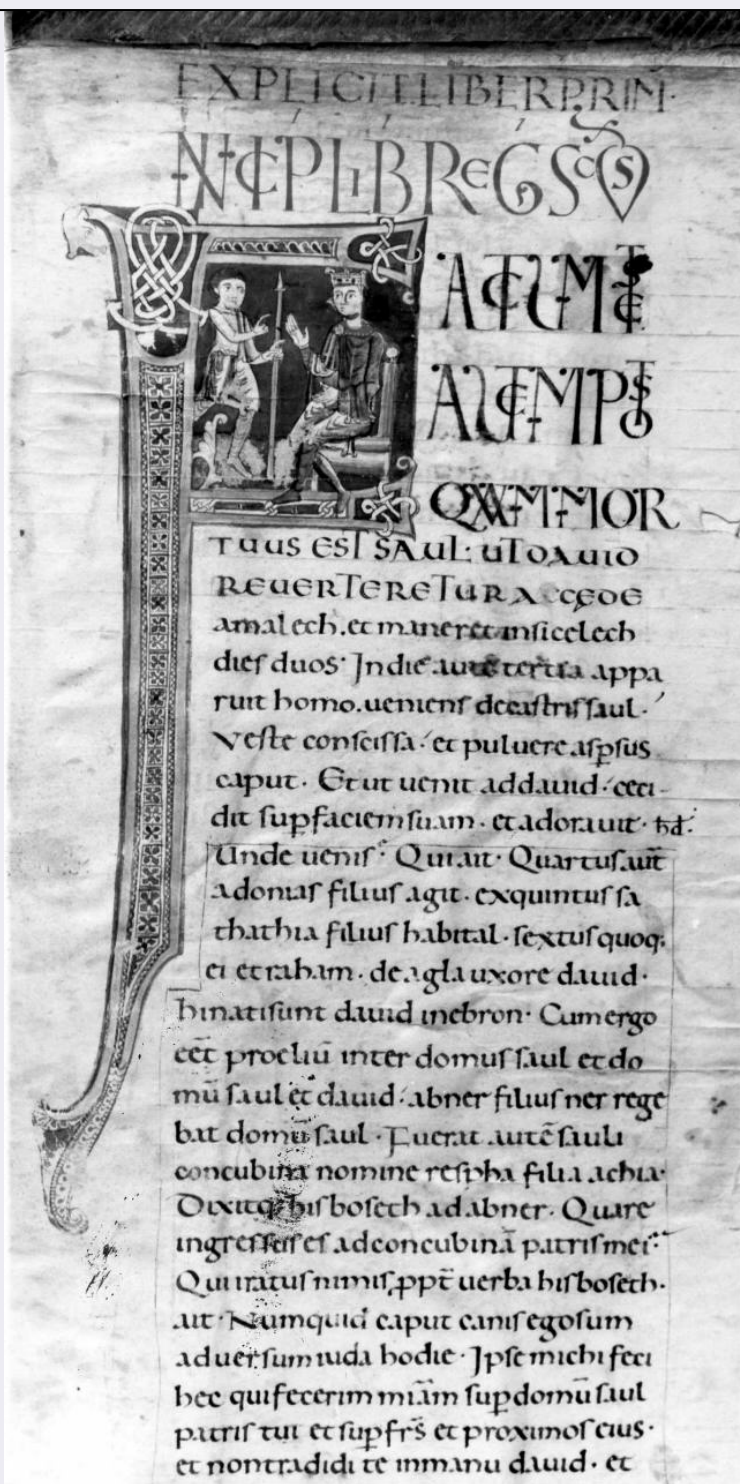 EXPLICIT LIBER PRIM·
INCIPI LIB REGS SCDS
FACTUM EST
AUTEM POST
QUAM MOR
TUUS EST SAUL: UT DAUID
REUERTERETUR A CEDE
amalech. et maneret insicelech
dies duos· Indie autē tertia appa
ruit homo. ueniens decastris saul·
Veste conscissa· et puluere aspsus
caput· Et ut uenit addauid· ceci
dit sup faciem suam· et adorauit· 
Unde uenis· Qui ait· Quartus aut̄
adonias filius agit· ex quintus sa
thathia filius habital· sextus quoq;
ei etraham· de agla uxore dauid·
hi nati sunt dauid inebron· Cum ergo
eēt proeliū inter domus saul et do
mū saul et dauid· abner filius ner rege
bat domū saul· Fuerat autē sauli
concubina nomine respha filia achia·
Dixitq; hisboseth ad abner· Quare
ingressus es ad concubinā patris mei·
Qui iratus nimis ppt̄ uerba hisboseth·
ait· Numquid caput canis ego sum
aduersum iuda hodie· Ipse michi feci
hec qui fecerim miām sup domū saul
patris tui et sup frs̄ et proximos eius·
et non tradidi te inmanu dauid· et